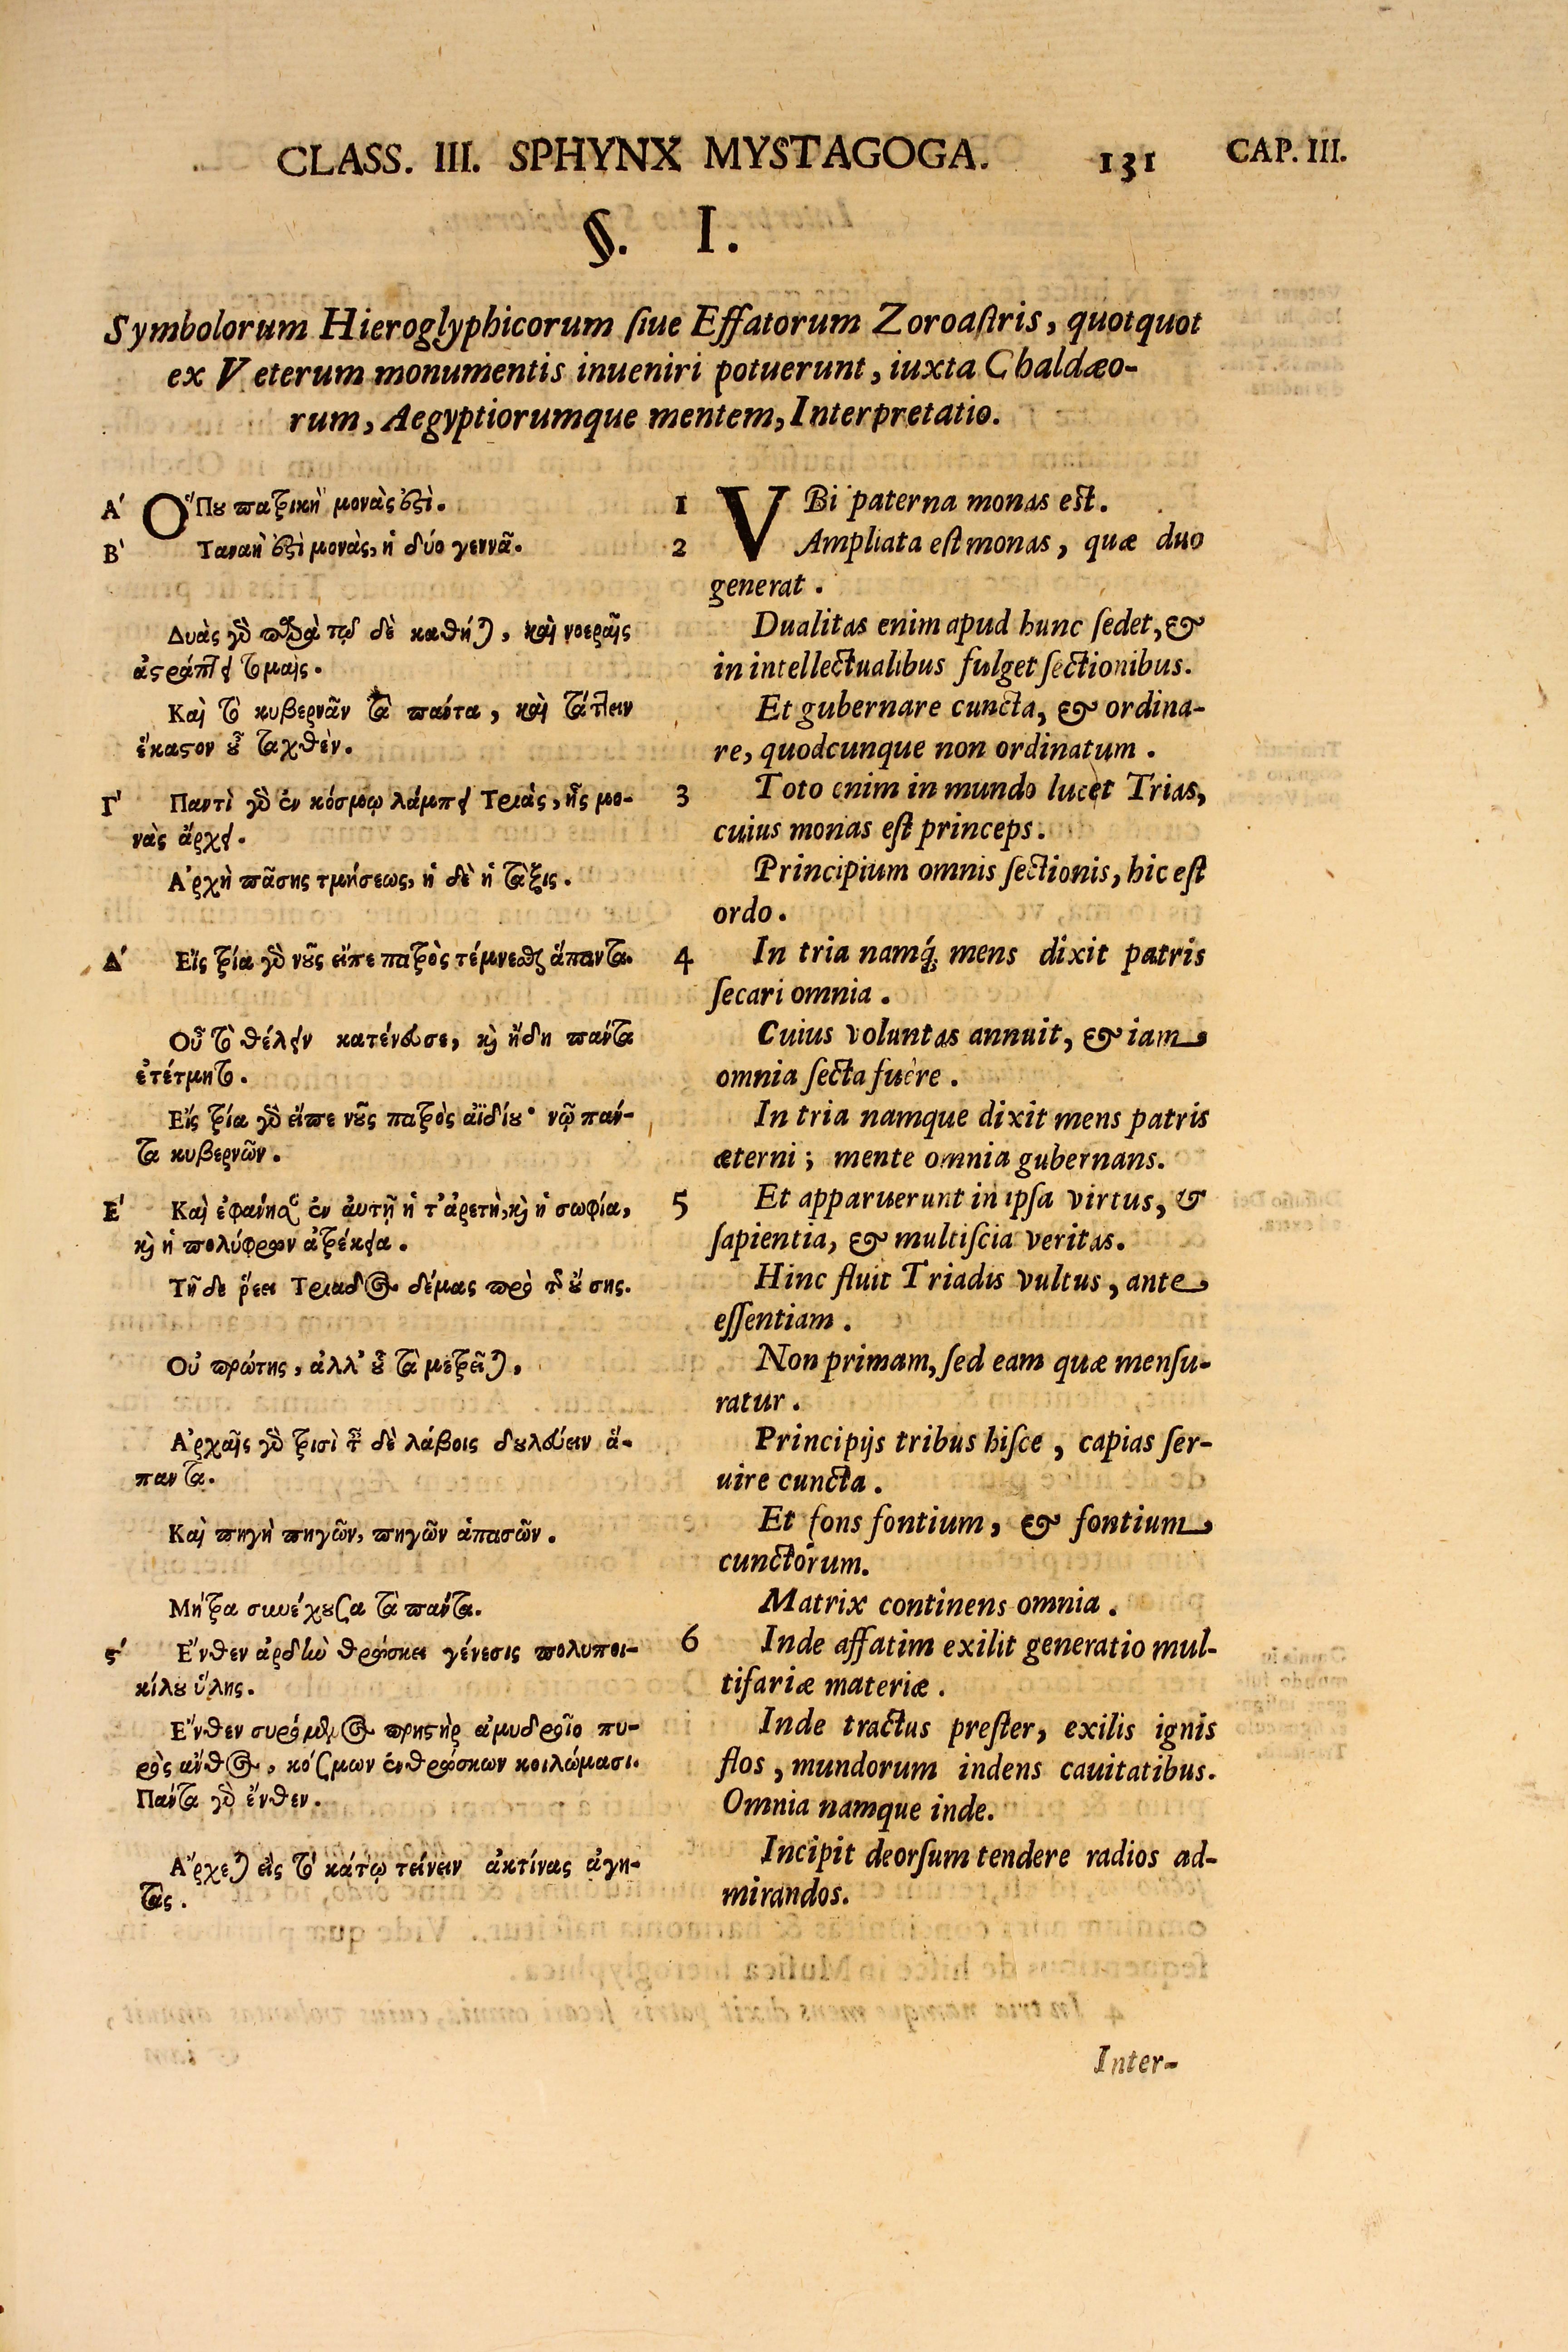 CLASS. III. SPHYNX MYSTAGOGA. 131 CAP. III.
§. I.
Symbolorum Hieroglyphicorum ſiue Effatorum Zoroaſtris, quotquot
ex Veterum monumentis inueniri potuerunt, iuxta Chaldæo-
rum, Aegyptiorumque mentem, Interpretatio.
Α΄ Ὅπȣ πατρικὴ μονάς ἐστὶ.
Β΄ Ταναή ἐστὶ μονὰς, ἡ δύο γεννᾶ.
Δυὰς γὸ παρὰ τῷ δὲ κάθηται, καὶ νοεραῖς
ἀστράπτει τομαῖς.
Καὶ τὸ κυβερνᾶν τὰ πάντα, καὶ τάττειν
ἕκαστον ȣ̓ ταχθὲν.
Γ΄ Παντὶ γὸ ἐν κόσμῳ λάμπει Τριὰς, ἧς μο-
νὰς ἄρχει.
Ἀρχὴ πᾶσης τμήσεως, ἡ δὲ ἡ τάξις.
Δ΄ Εἰς τρία γὸ νȣ͂ς εἶπε πατρὸς τέμνεσθαι ἅπαντα.
Οὗ τὸ θέλειν κατένευσε, κὶ ἤδη πάντα
ἐτέτμητο.
Εἰς τρία γὸ εἶπε νȣ͂ς πατρὸς ἀϊδίȣ· νῷ πάν-
τα κυβερνῶν.
Ε΄ Καὶ ἐφάνησαν ἐν ἀυτῇ ἡ τ᾽ ἀρετὴ, κὶ ἡ σωφία,
κὶ ἡ πολύφρων ἀτρέκεια.
Τῇ δε ῥέει Τριάδος δέμας πρὸ τῆς ȣ̓́σης.
Οὐ πρώτης, ἀλλ᾽ ȣ̓͂ τὰ μετρεῖται,
Ἀρχαῖς γὸ τρισὶ ταῖς δὲ λάβοις δȣλεύειν ἅ-
παντα.
Καὶ πηγὴ πηγῶν, πηγῶν ἁπασῶν.
Μήτρα συνέχȣσα τὰ πάντα.
ϛ΄ Ἔνθεν ἀρδὴν θρώσκει γένεσις πολυποι-
κίλȣ ὕλης.
Ἔνθεν συρόμενος πρηστὴρ ἀμυδροῖο πυ-
ρὸς ἄνθος, κόσμων ἐνθρώσκων κοιλώμασι.
Πάντα γὸ ἔνθεν.
Ἄρχεται εἰς τὸ κάτω τείνειν ἀκτίνας ἀγη-
τάς.
1 VBi paterna monas est.
2 Ampliata eſt monas, quæ duo
generat.
Dualitas enim apud hunc ſedet, &
in intellectualibus fulget ſectionibus.
Et gubernare cuncta, & ordina-
re, quodcunque non ordinatum.
3 Toto enim in mundo lucet Trias,
cuius monas eſt princeps.
Principium omnis ſectionis, hic eſt
ordo.
4 In tria namq́; mens dixit patris
ſecari omnia.
Cuius voluntas annuit, & iam
omnia ſecta fuêre.
In tria namque dixit mens patris
æterni; mente omnia gubernans.
5 Et apparuerunt in ipſa virtus, &
ſapientia, & multiſcia veritas.
Hinc fluit Triadis vultus, ante
eſſentiam.
Non primam, ſed eam quæ menſu-
ratur.
Principijs tribus hiſce, capias ſer-
uire cuncta.
Et fons fontium, & fontium
cunctorum.
Matrix continens omnia.
6 Inde affatim exilit generatio mul-
tifariæ materiæ.
Inde tractus preſter, exilis ignis
flos, mundorum indens cauitatibus.
Omnia namque inde.
Incipit deorſum tendere radios ad-
mirandos.
Inter-